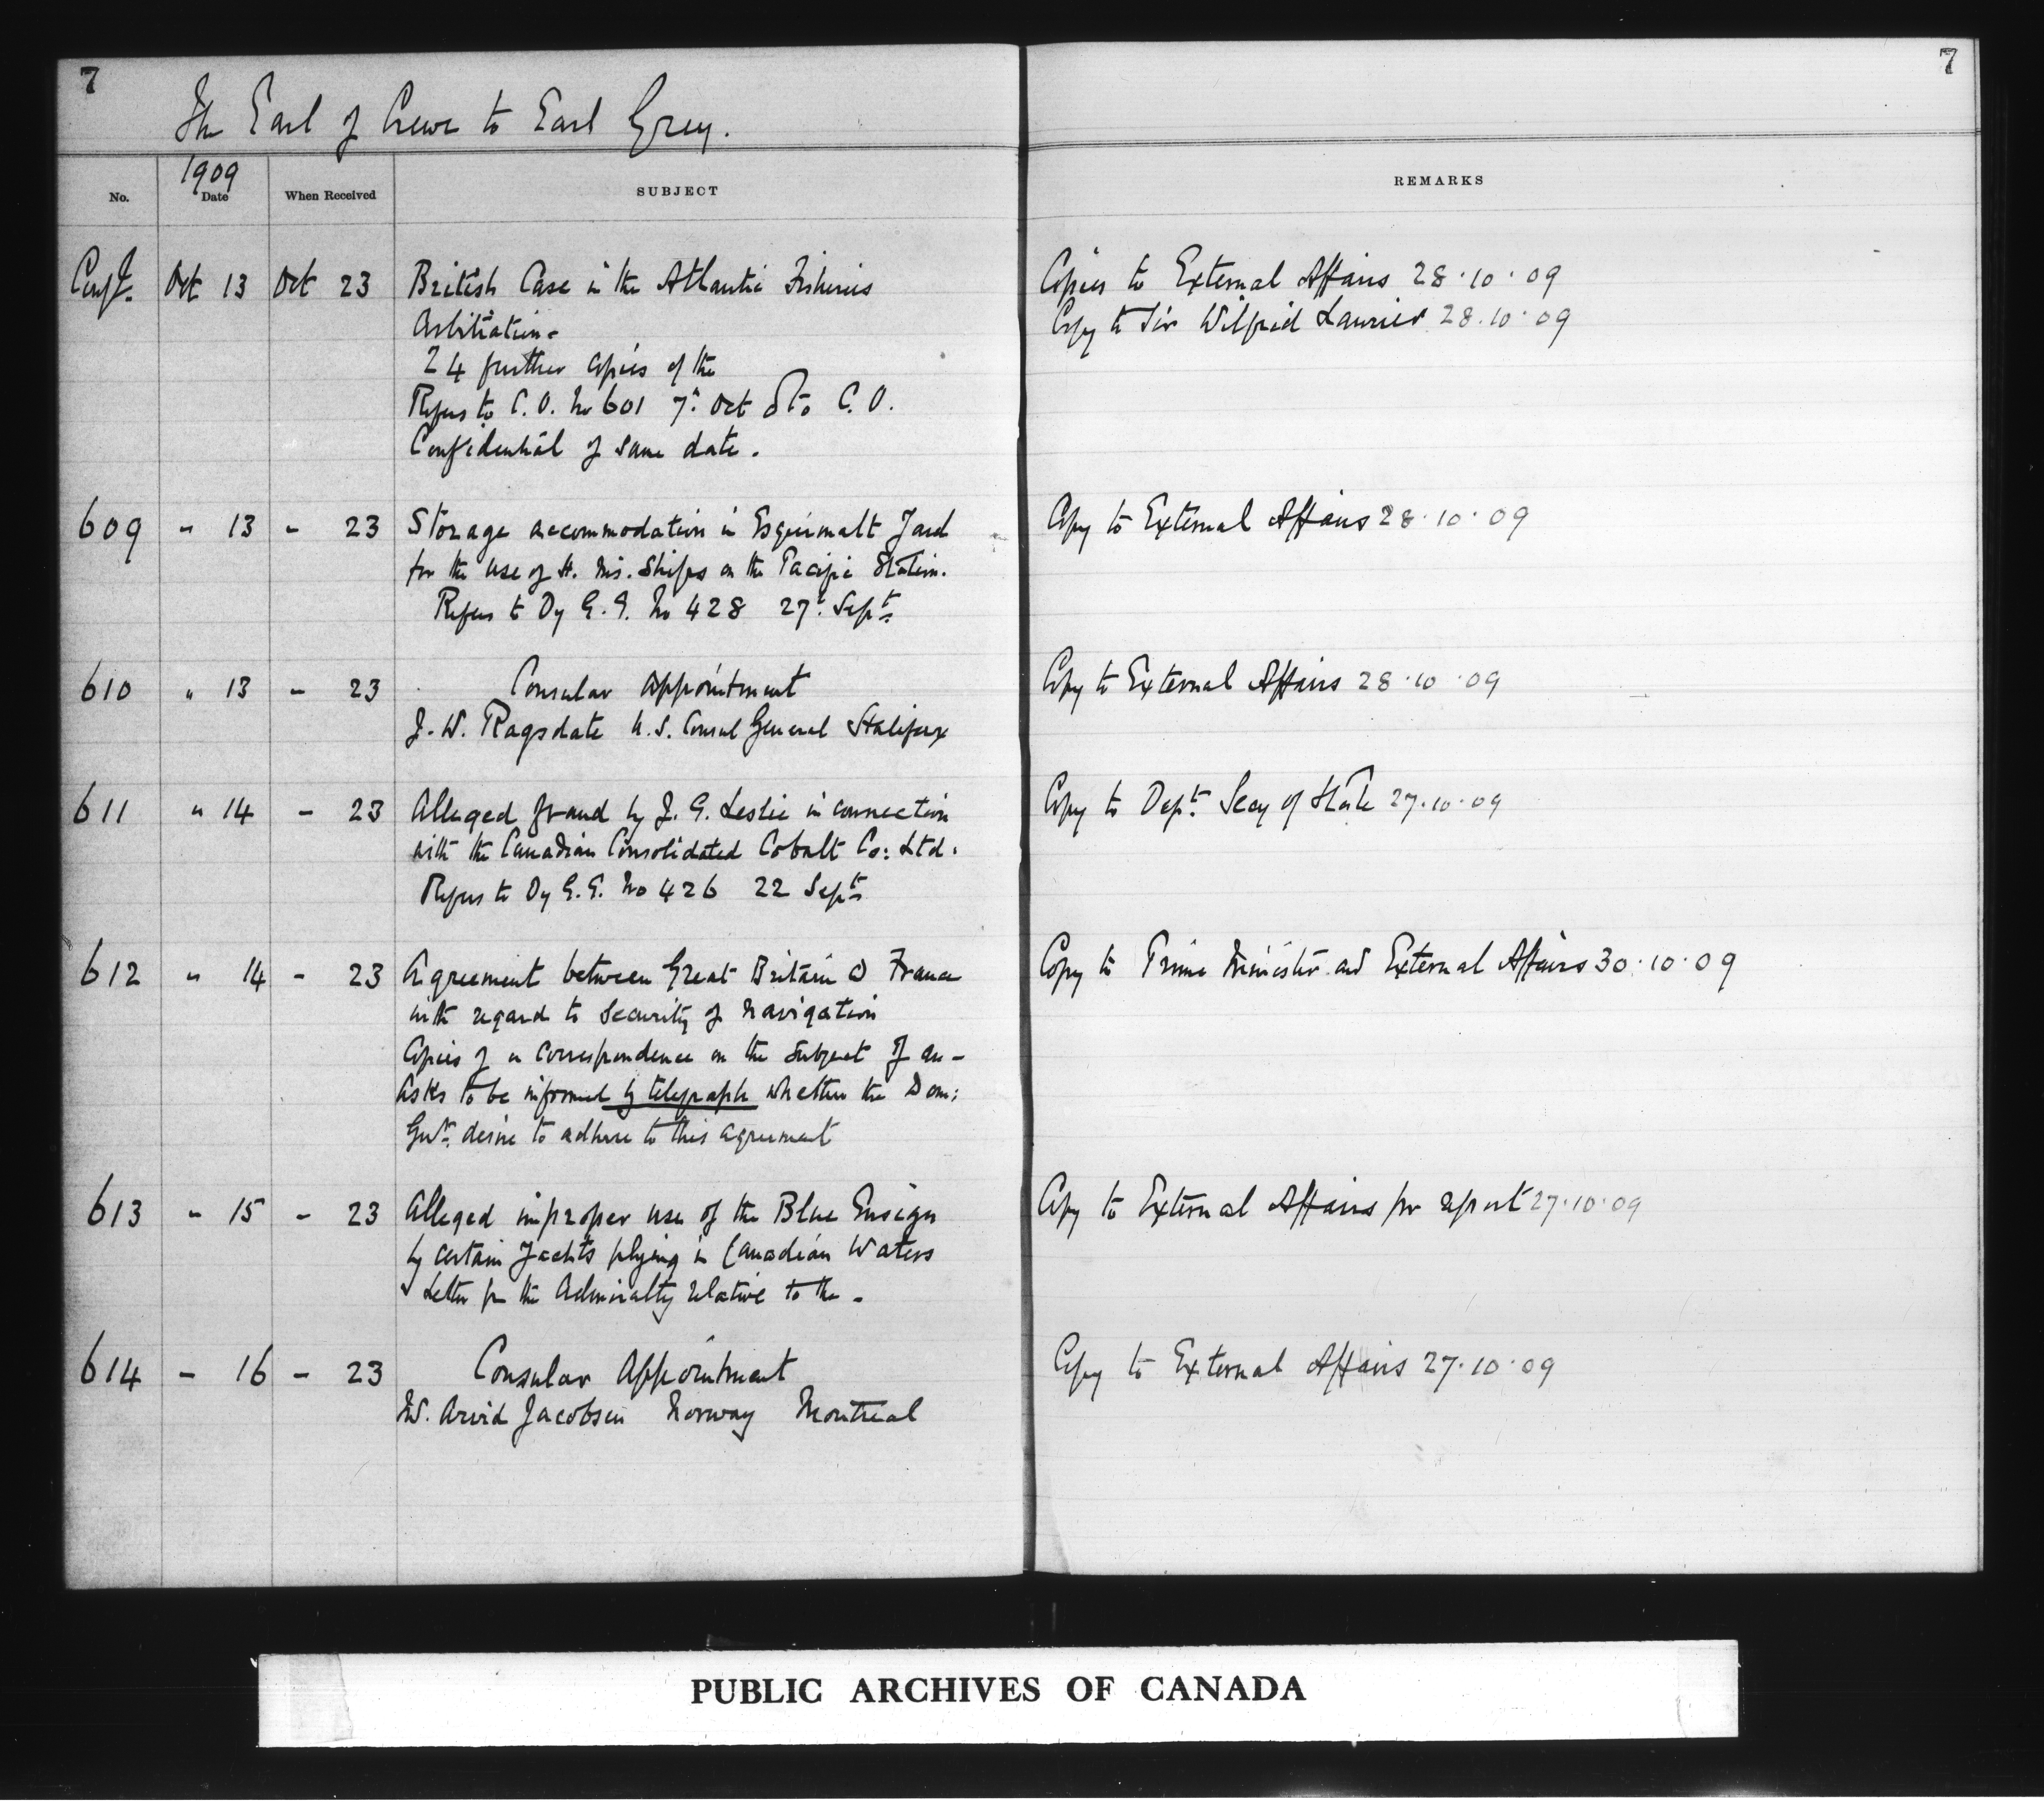 7
7
The Earl of Crewe to Earl Grey.
1909
No. Date When Received SUBJECT REMARKS
Confl. Oct 13 Oct 23 British Case in the Atlantic Fisheries Copies to External Affairs 28.10.09
Arbitration- Copy to Sir Wilfrid Laurier 28.10.09
24 further copies of the
Refers to C.O. No 601 7th Oct & to C.O.
Confidential of same date.
609 " 13 - 23 Storage accommodation in Esquimalt Yard Copy to External Affairs 28.10.09
for the use of H. M's. Ships on the Pacific Station.
Refers to Dy G.G. No 428 27th Sept
610 " 13 - 23 Consular Appointment Copy to External Affairs 28.10.09
J. W. Ragsdate U.S. Consul General Halifax
611 " 14 - 23 Alleged fraud by J. G. Leslie in connection Copy to Dept Secy of State 27.10.09
with the Canadian Consolidated Cobalt Co: Ltd.
Refers to Dy G.G. No 426 22 Sept
612 " 14 - 23 Agreement between Great Britain & France Copy to Prime Minister and External Affairs 30.10.09
with regard to security of navigation
Copies of a correspondence on the subject of an -
Asks to be informed by telegraph whether the Dom:
Govt. desire to adhere to this agreement
613 " 15 - 23 Alleged improper use of the Blue Ensign Copy to External Affairs for report 27.10.09
by certain Yachts plying in Canadian Waters
Letter fr the Admiralty relative to the -
614 - 16 - 23 Consular Appointment Copy to External Affairs 27.10.09
Arvid Jacobsen Norway Montreal
PUBLIC ARCHIVES OF CANADA